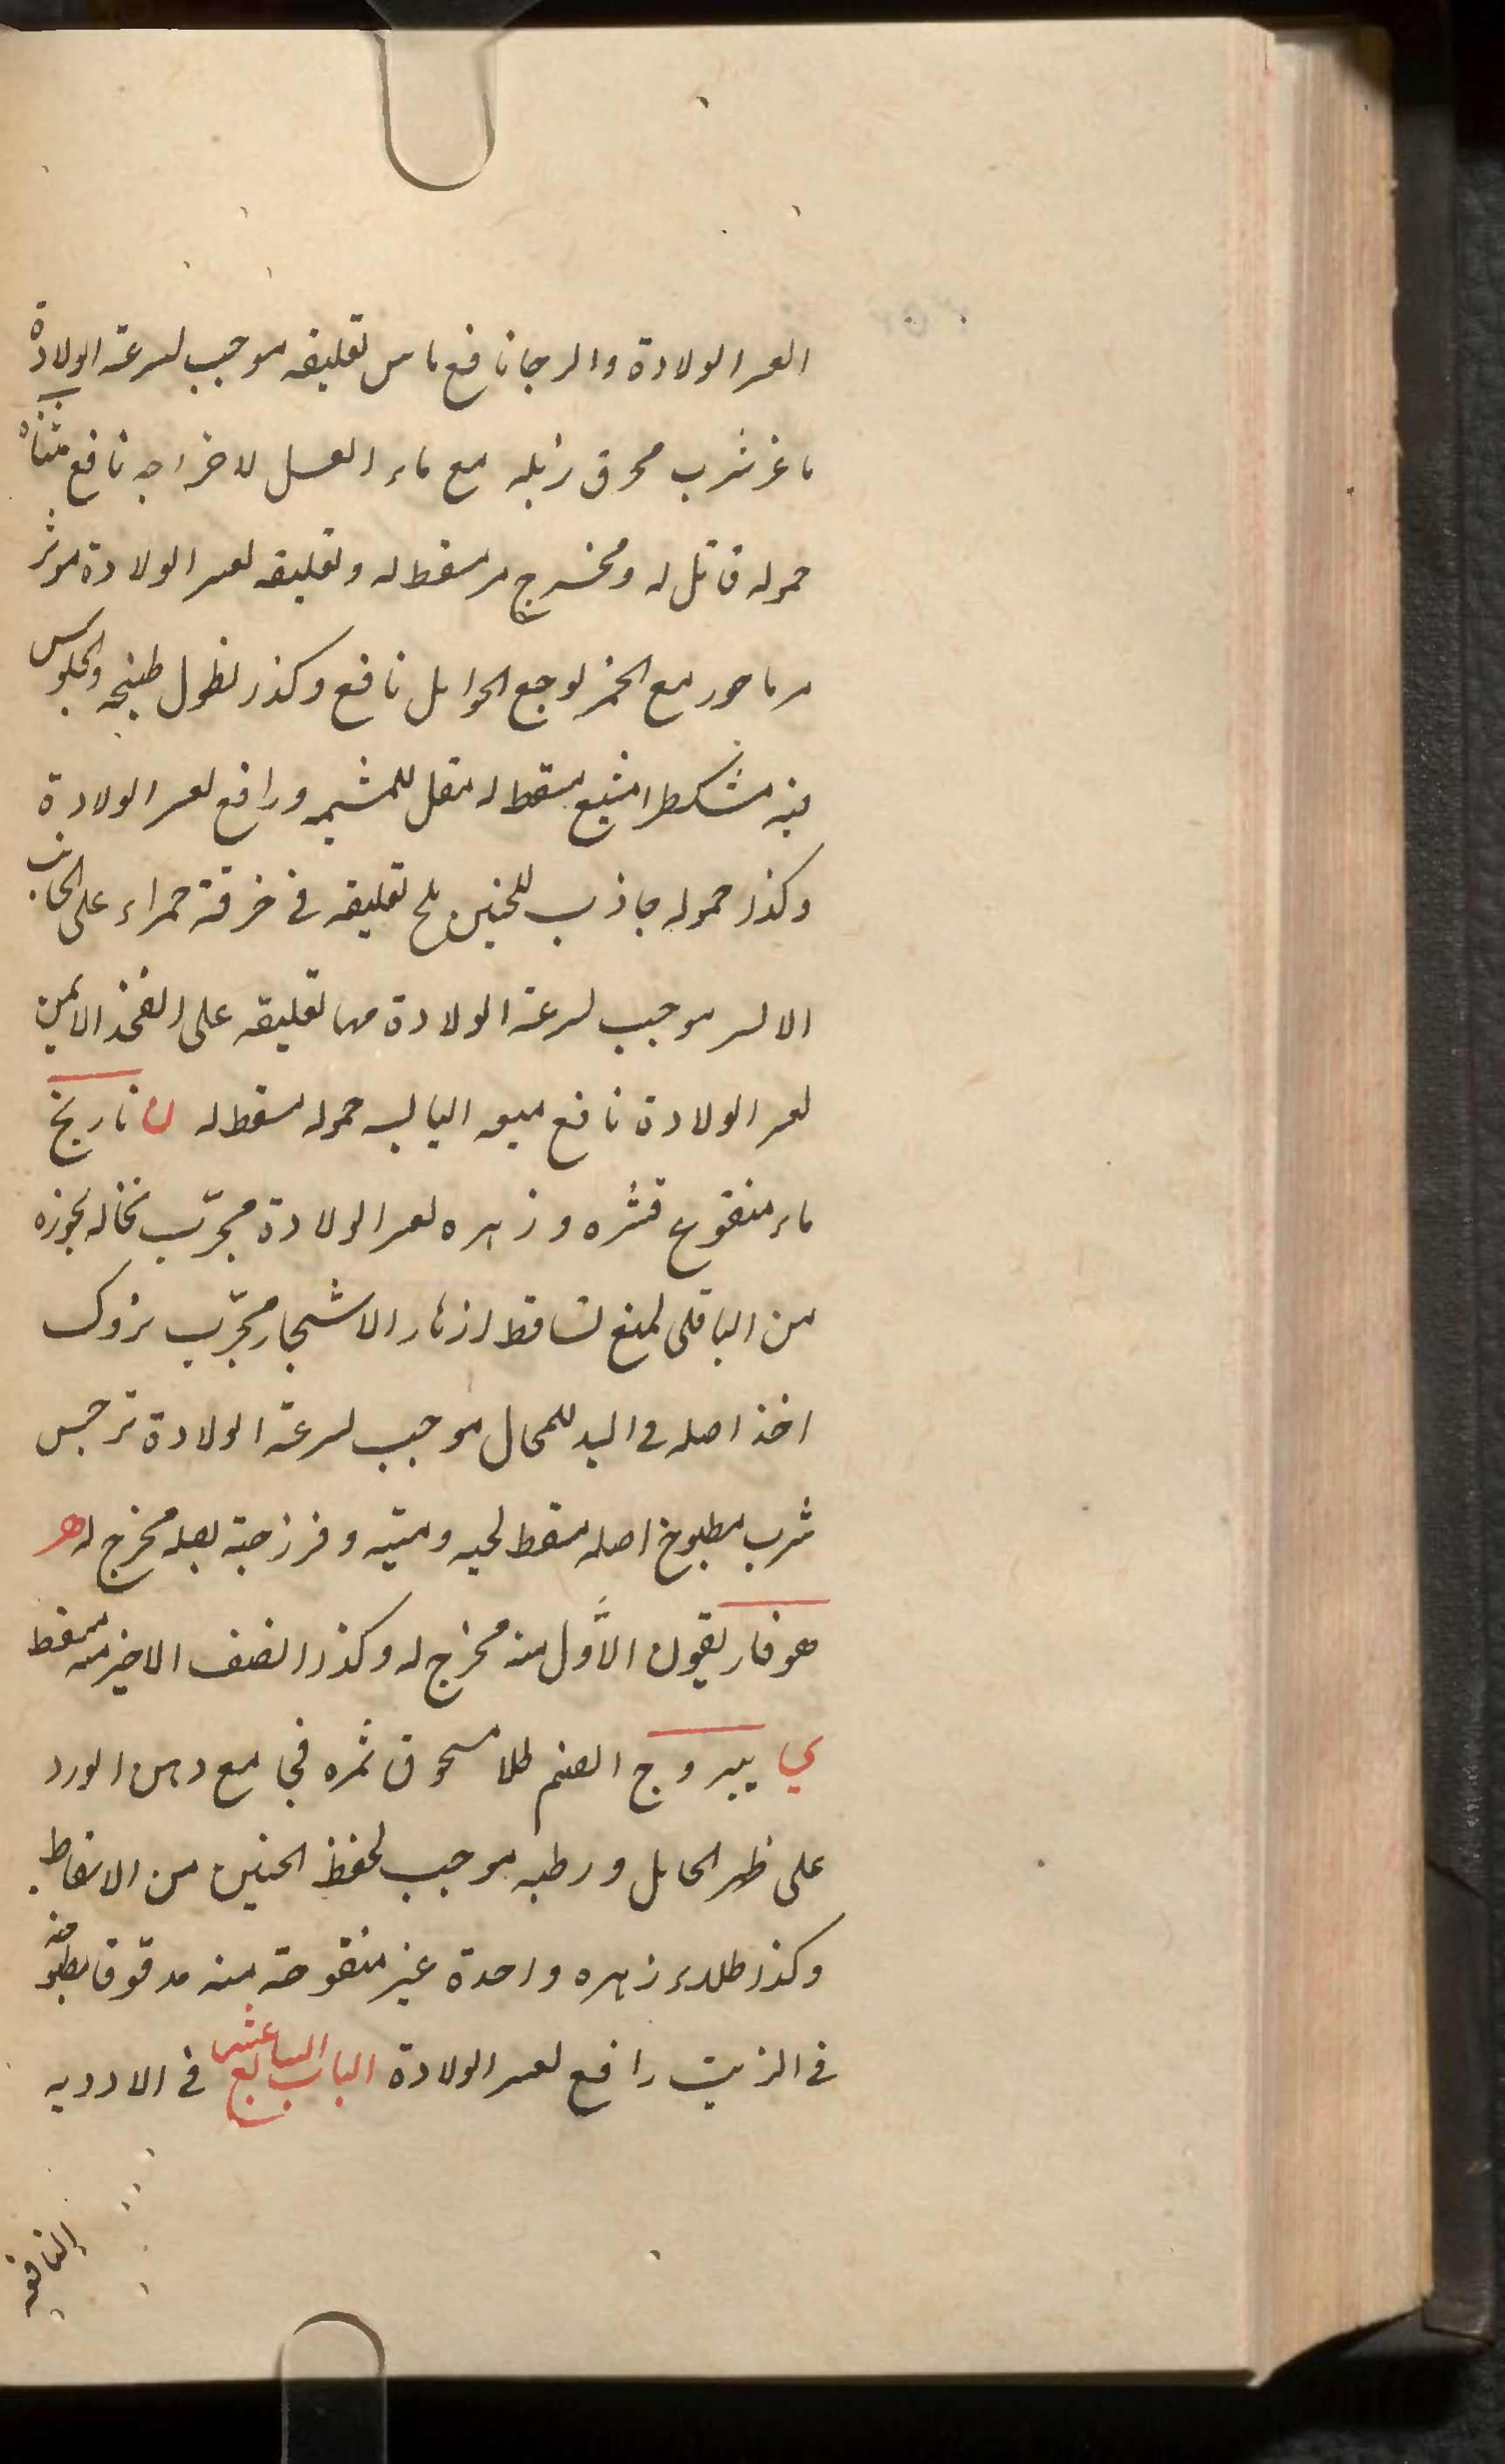 العسر الولادة والرجا نافع ماس تعليقه موجب لسرعة الولادة
ماعز شرب محرق زبله مع ماء العسل لاخراجه نافع مثنان
حموله قاتل له ومخرج مر مسقط له وتعليقه لعسر الولادة موثر
مرماحور مع الخمر لوجع الحوامل نافع وكذر نطول طبيخه والجلوس
فيه مشكطرا مشيع مسقط له مقل للمشيمه ورافع لعسر الولادة
وكذر حموله جاذب للجنين ملح تعليقه في خرقة حمراء على الجانب
الالسر موجب لسرعة الولادة مها تعليقه على الفخذ الايمن
لعسر الولادة نافع ميعه اليابسه حموله مسقط له ن نارنج
ماء منقوع قشره وزهره لعسر الولادة مجرب نخاله بخوره
من الباقلى لمنع تساقط ازهار الاشجار مجرب نزوك
اخذ اصله في اليد للمحال موجب لسرعة الولادة نرجس
شرب مطبوخ اصله مسقط لحيه وميته وفرزجة بصله مخرج له هـ
هوفاريقون الأول منه مخرج له وكذر الصنف الاخير منه مسقط
ي يبروج الصنم طلا مسحوق ثمره في مع دهن الورد
على ظهر الحامل ورطبه موجب لحفظ الجنين من الاسقاط
وكذر طلاء زهره واحدة غير منقوحة منه مدقوقا مطبوخه
في الزيت رافع لعسر الولادة الباب السابع عشر في الادويه
النافعه